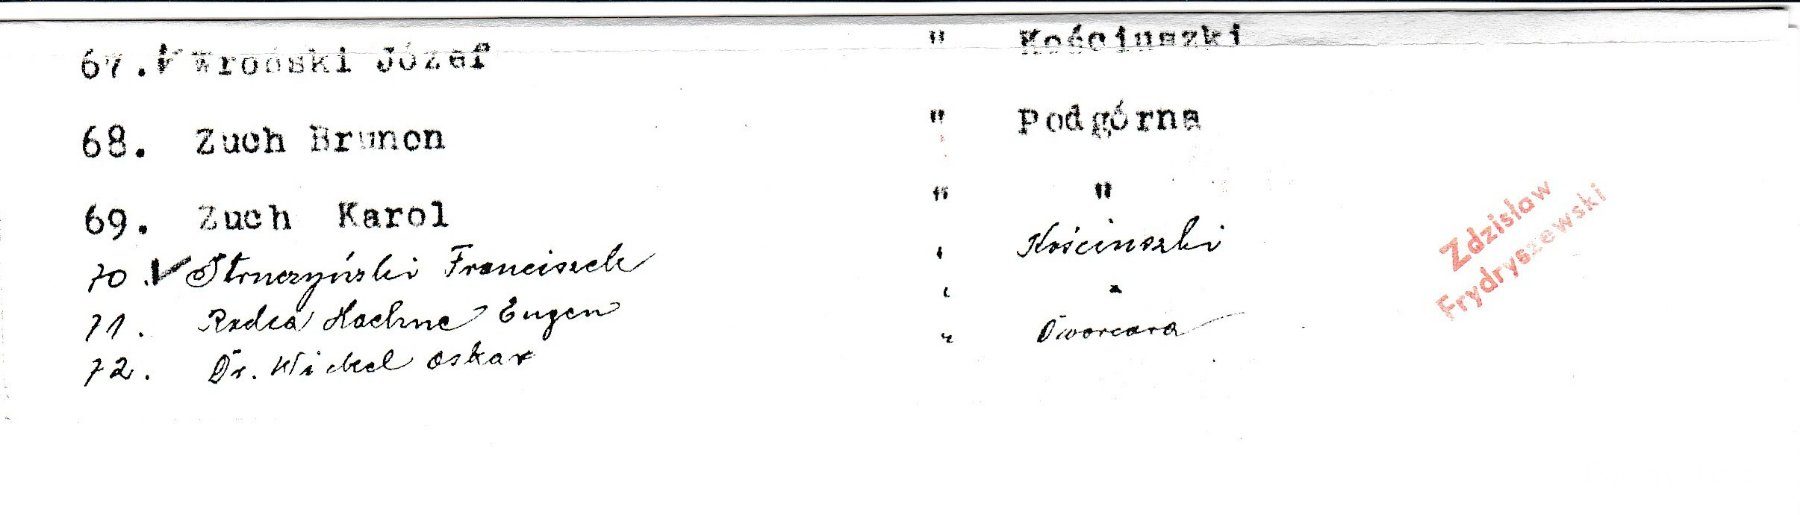 67. √ Wroński Józef " Kościuszki
68. Zuch Brunon " Podgórna
69. Zuch Karol " "
70. √ Struczyński Franciszek " Kościuszki
71. Radca Hoehne Eugen " "
72. Dr. Wickel Oskar " Dworcowa
Zdzisław
Frydryszewski